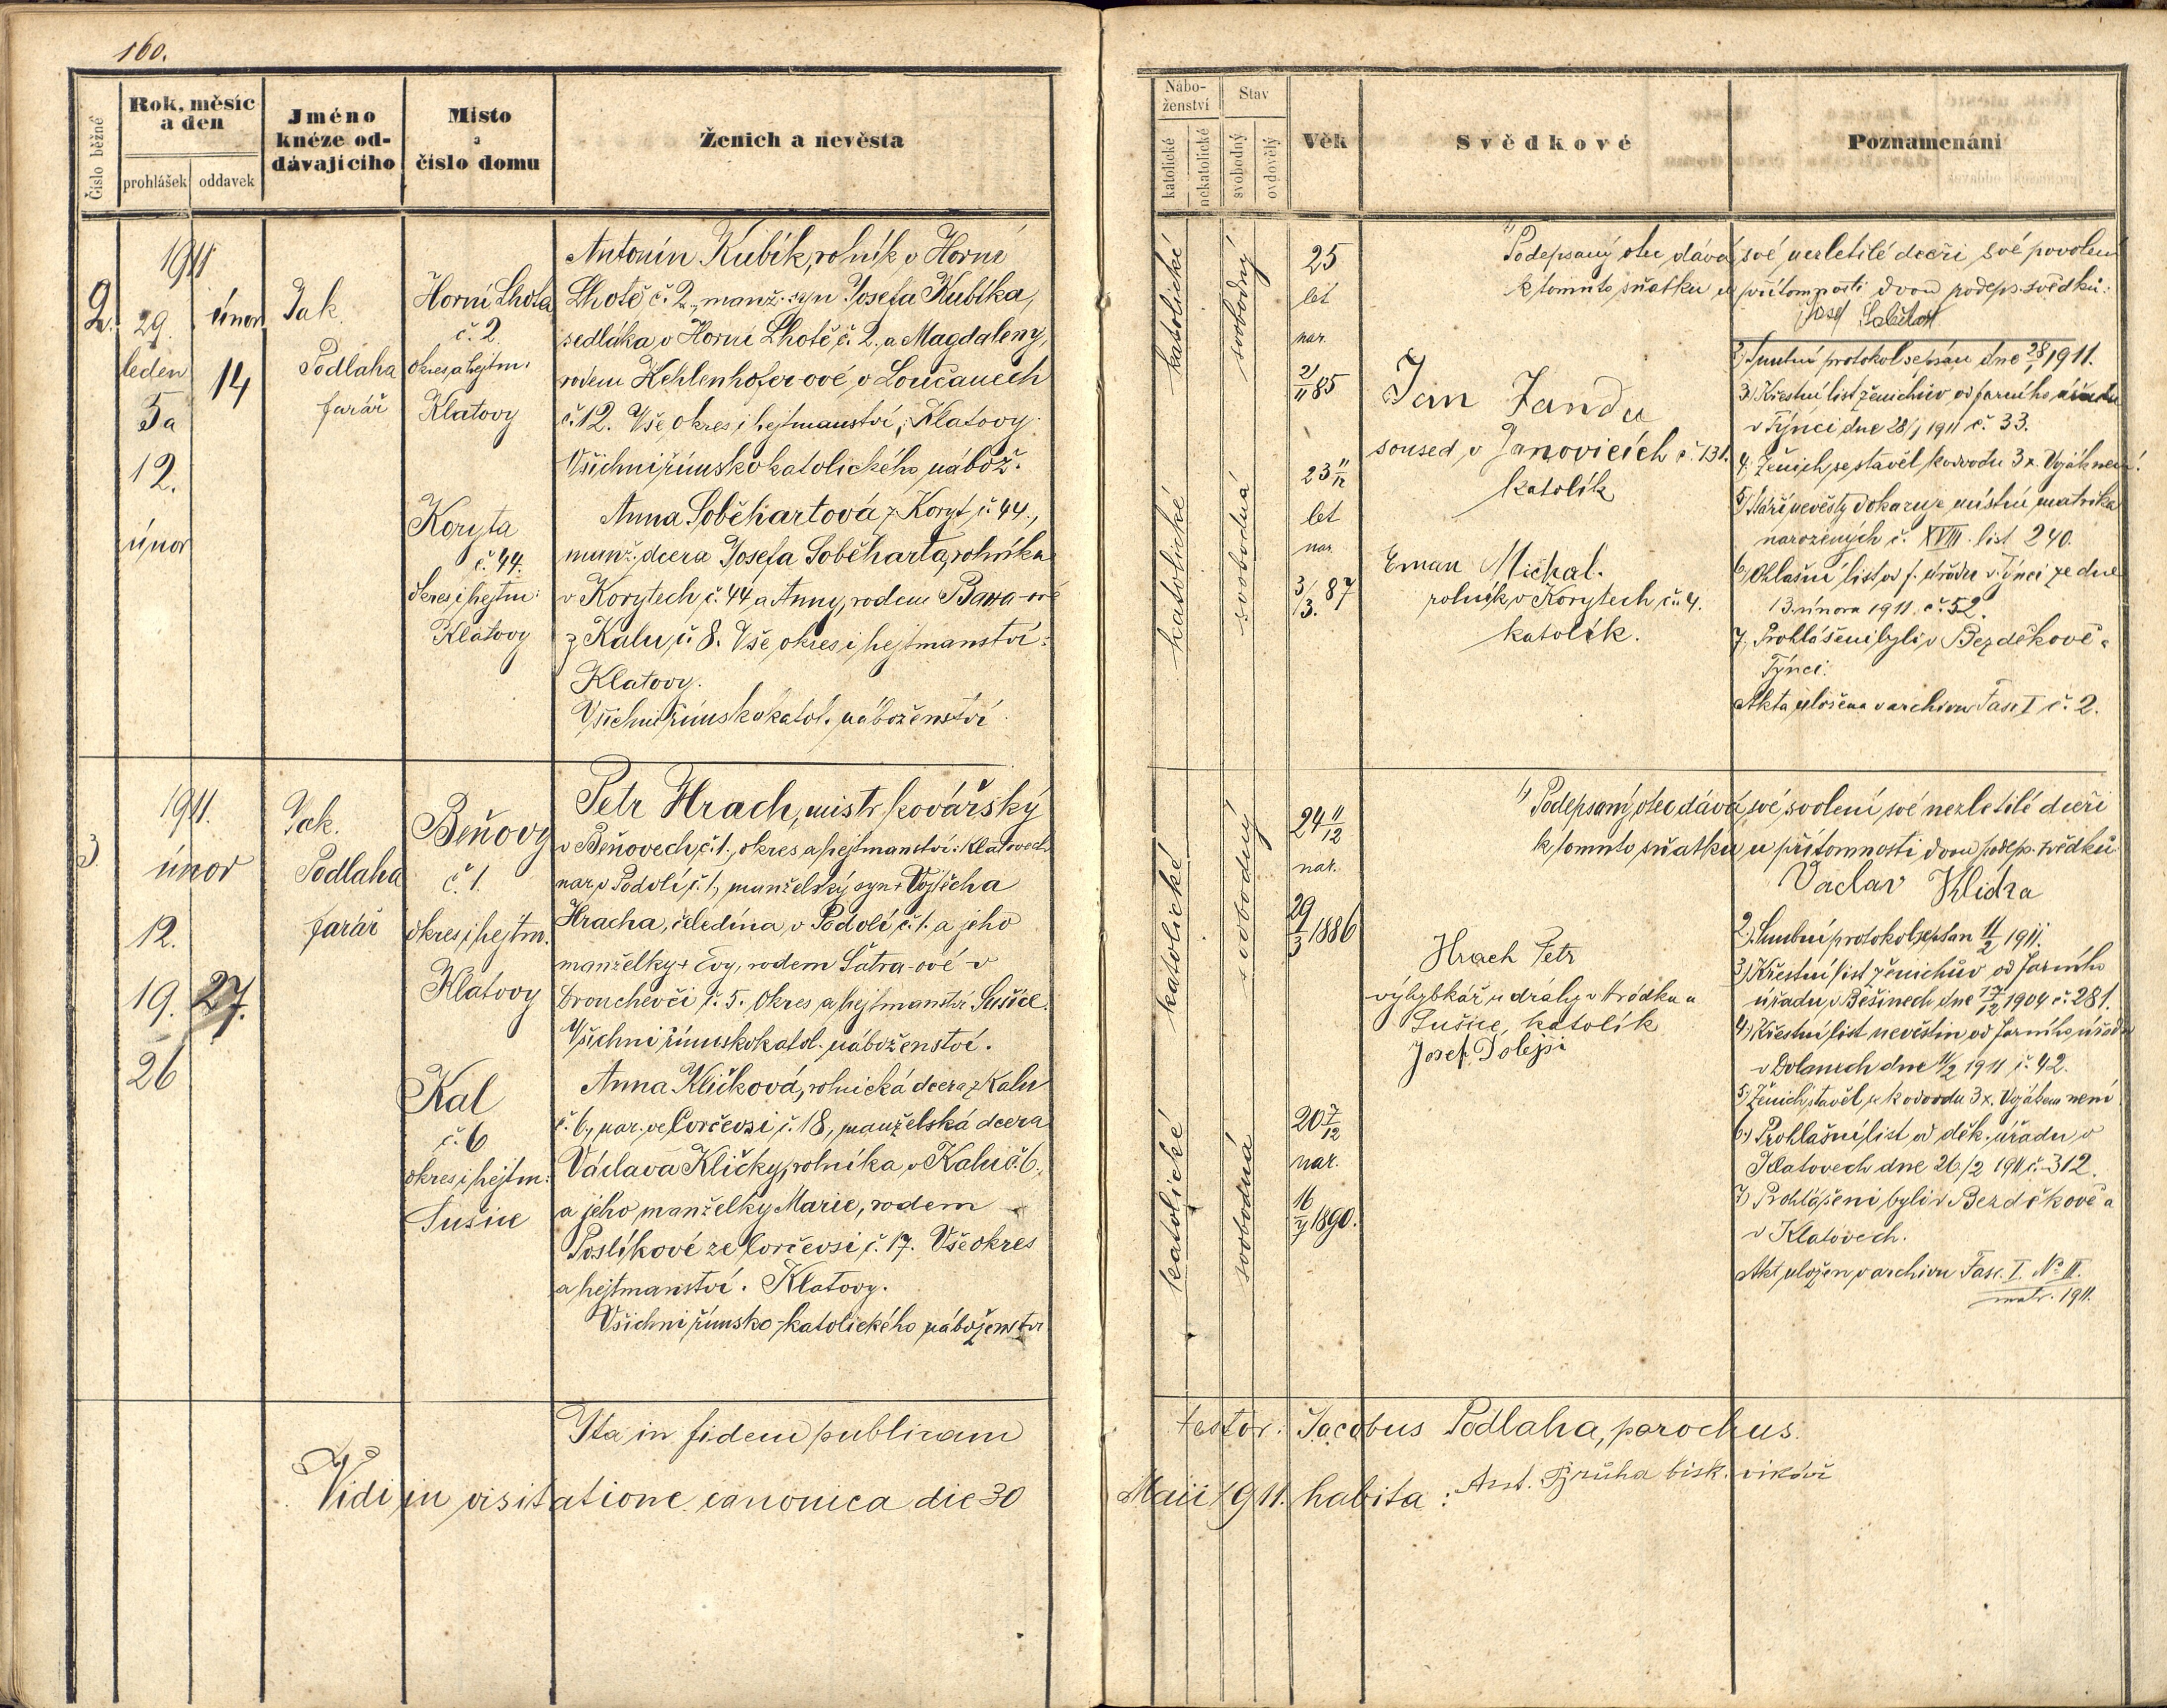 160.
Číslo běžné
Rok, měsíc
a den
prohlášek
oddavek
Jméno
knéze od-
dávajícího
Místo
a
číslo domu
Ženich a nevěsta
2.
1911
29.
leden
5a
12.
únor
únor
14
Jak.
Podlaha
farář
Horní Lhota
č. 2.
okres, a hejtm.
Klatovy
Koryta
č. 44.
okres i hejtm:
Klatovy
Antonín Kubík, rolník v Horní
Lhotě č. 2., manž. syn Josefa Kubíka,
sedláka v Horní Lhotě č. 2. a Magdaleny,
rodem Kehlenhofer-ové v Loučanech
č. 12. Vše okres i hejtmanství: Klatovy.
Všichni římskokatolického nábož.
Anna Soběhartová z Koryt č. 44.,
manž. dcera Josefa Soběharta, rolníka
v Korytech, č. 44 a Anny, rodem
z Kalu, č. 8. Vše okres i hejtmanství:
Klatovy.
Všichni římskokatol. náboženství
3.
1911.
únor
12.
19.
26
27.
Jak.
Podlaha
farář
Beňovy
č. 1.
okres i hejtm.
Klatovy
Kal
č. 6
okres i hejtm:
Sušice
Petr Hrach, mistr kovářský
v Beňovech, č. 1., okres a hejtmanství: Klatovech
nar. v Podolí, č. 1, manželský syn + Vojtěcha
Hracha, čeledína, v Podolí, č. 1. a jeho
manželky + Evy, rodem Šatra-ové v
č. 5. Okres a hejtmanství Sušice.
Všichni římskokatol. náboženství.
Anna Kličková, rolnická dcera z Kalu
č. 6, nar. ve č. 18, manželská dcera
Václava Kličky, rolníka v Kalu č. 6.,
a jeho manželky Marie, rodem
Poslíkové ze č. 17. Vše okres
a hejtmanství. Klatovy.
Všichni římsko-katolického náboženství
Ita in fidem publicam
Vidi in visitatione canonica die 30
Nábo-
ženství
katolické
nekatolické
Stav
svobodný
ovdovělý
Věk
Svědkové
Poznamenání
katolické
svobodný
25
let
nar.
2/11 85
katolické
svobodná
23 11/12
let
nar.
3/3. 87
Jan Janda
soused v Janovicích č. 131.
katolík
Eman Michal.
rolník v Korytech č. 4.
katolík.
1) Podepsaný otec dává své nezletilé dceři své povolení
k tomuto sňatku u přítomnosti dvou podeps. svědků:
Josef
2) Smluvní protokol sepsán dne 28/1 1911.
3) Křestní list ženichův od farního úřadu
v Týnci dne 28/1 1911 č. 33.
4. Ženich se stavěl k odvodu 3x. Voják není!
5) Stáří nevěsty dokazuje místní matrika
narozených č. XVIII. list 240.
6) Ohlašní list od f. úřadu v Týnci ze dne
13. února 1911. č. 52.
7. Prohlášeni byli v Bezděkově a
Týnci.
Akta uložena v archivu Fasc I č. 2.
katolické
svobodný
24 11/12
nar.
29/3 1886
katolické
svobodná
20 7/12
nar.
16/7 1890.
Hrach Petr
výhybkář u dráhy v Hrádku u
Sušice, katolík
Josef Dolejší
1) Podepsaný otec dává své svolení své nezletilé dceři
k tomuto sňatku u přítomnosti dvou podep. svědků
Vaclav Klička
2.) Smluvní protokol sepsán 11/2 1911.
3) Křestní list ženichův od farního
úřadu v Běšinech dne 17/12 1904 č. 281.
4) Křestní list nevěstin od farního úřadu
v Dolanech dne 11/2 1911 č. 42.
5) Ženich stavěl se k odvodu 3x. Vojákem není
6.) Prohlašní list od děk. úřadu v
Klatovech dne 26/2 1911 č. 312.
7) Prohlášeni byli v Bezděkově a
v Klatovech.
Akt uložen v archivu Fasc. I. No II.
matr. 1911.
testor: Jacobus Podlaha, parochus.
Maii 1911. habita: Ant. bisk. vikář